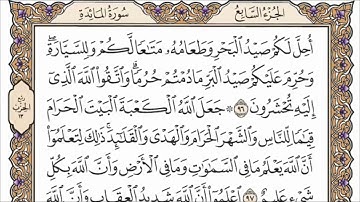 الجزء السابع سورة المائدة
أُحِلَّ لَكُمْ صَيْدُ الْبَحْرِ وَطَعَامُهُ مَتَاعًا لَّكُمْ وَلِلسَّيَّارَةِ
وَحُرِّمَ عَلَيْكُمْ صَيْدُ الْبَرِّ مَا دُمْتُمْ حُرُمًا وَاتَّقُوا اللَّهَ الَّذِي
إِلَيْهِ تُحْشَرُونَ ٩٦ جَعَلَ اللَّهُ الْكَعْبَةَ الْبَيْتَ الْحَرَامَ
قِيَامًا لِّلنَّاسِ وَالشَّهْرَ الْحَرَامَ وَالْهَدْيَ وَالْقَلَائِدَ ذَلِكَ لِتَعْلَمُوا
أَنَّ اللَّهَ يَعْلَمُ مَا فِي السَّمَاوَاتِ وَمَا فِي الْأَرْضِ وَأَنَّ اللَّهَ بِكُلِّ
شَيْءٍ عَلِيمٌ ٩٧ اعْلَمُوا أَنَّ اللَّهَ شَدِيدُ الْعِقَابِ وَأَنَّ اللَّهَ